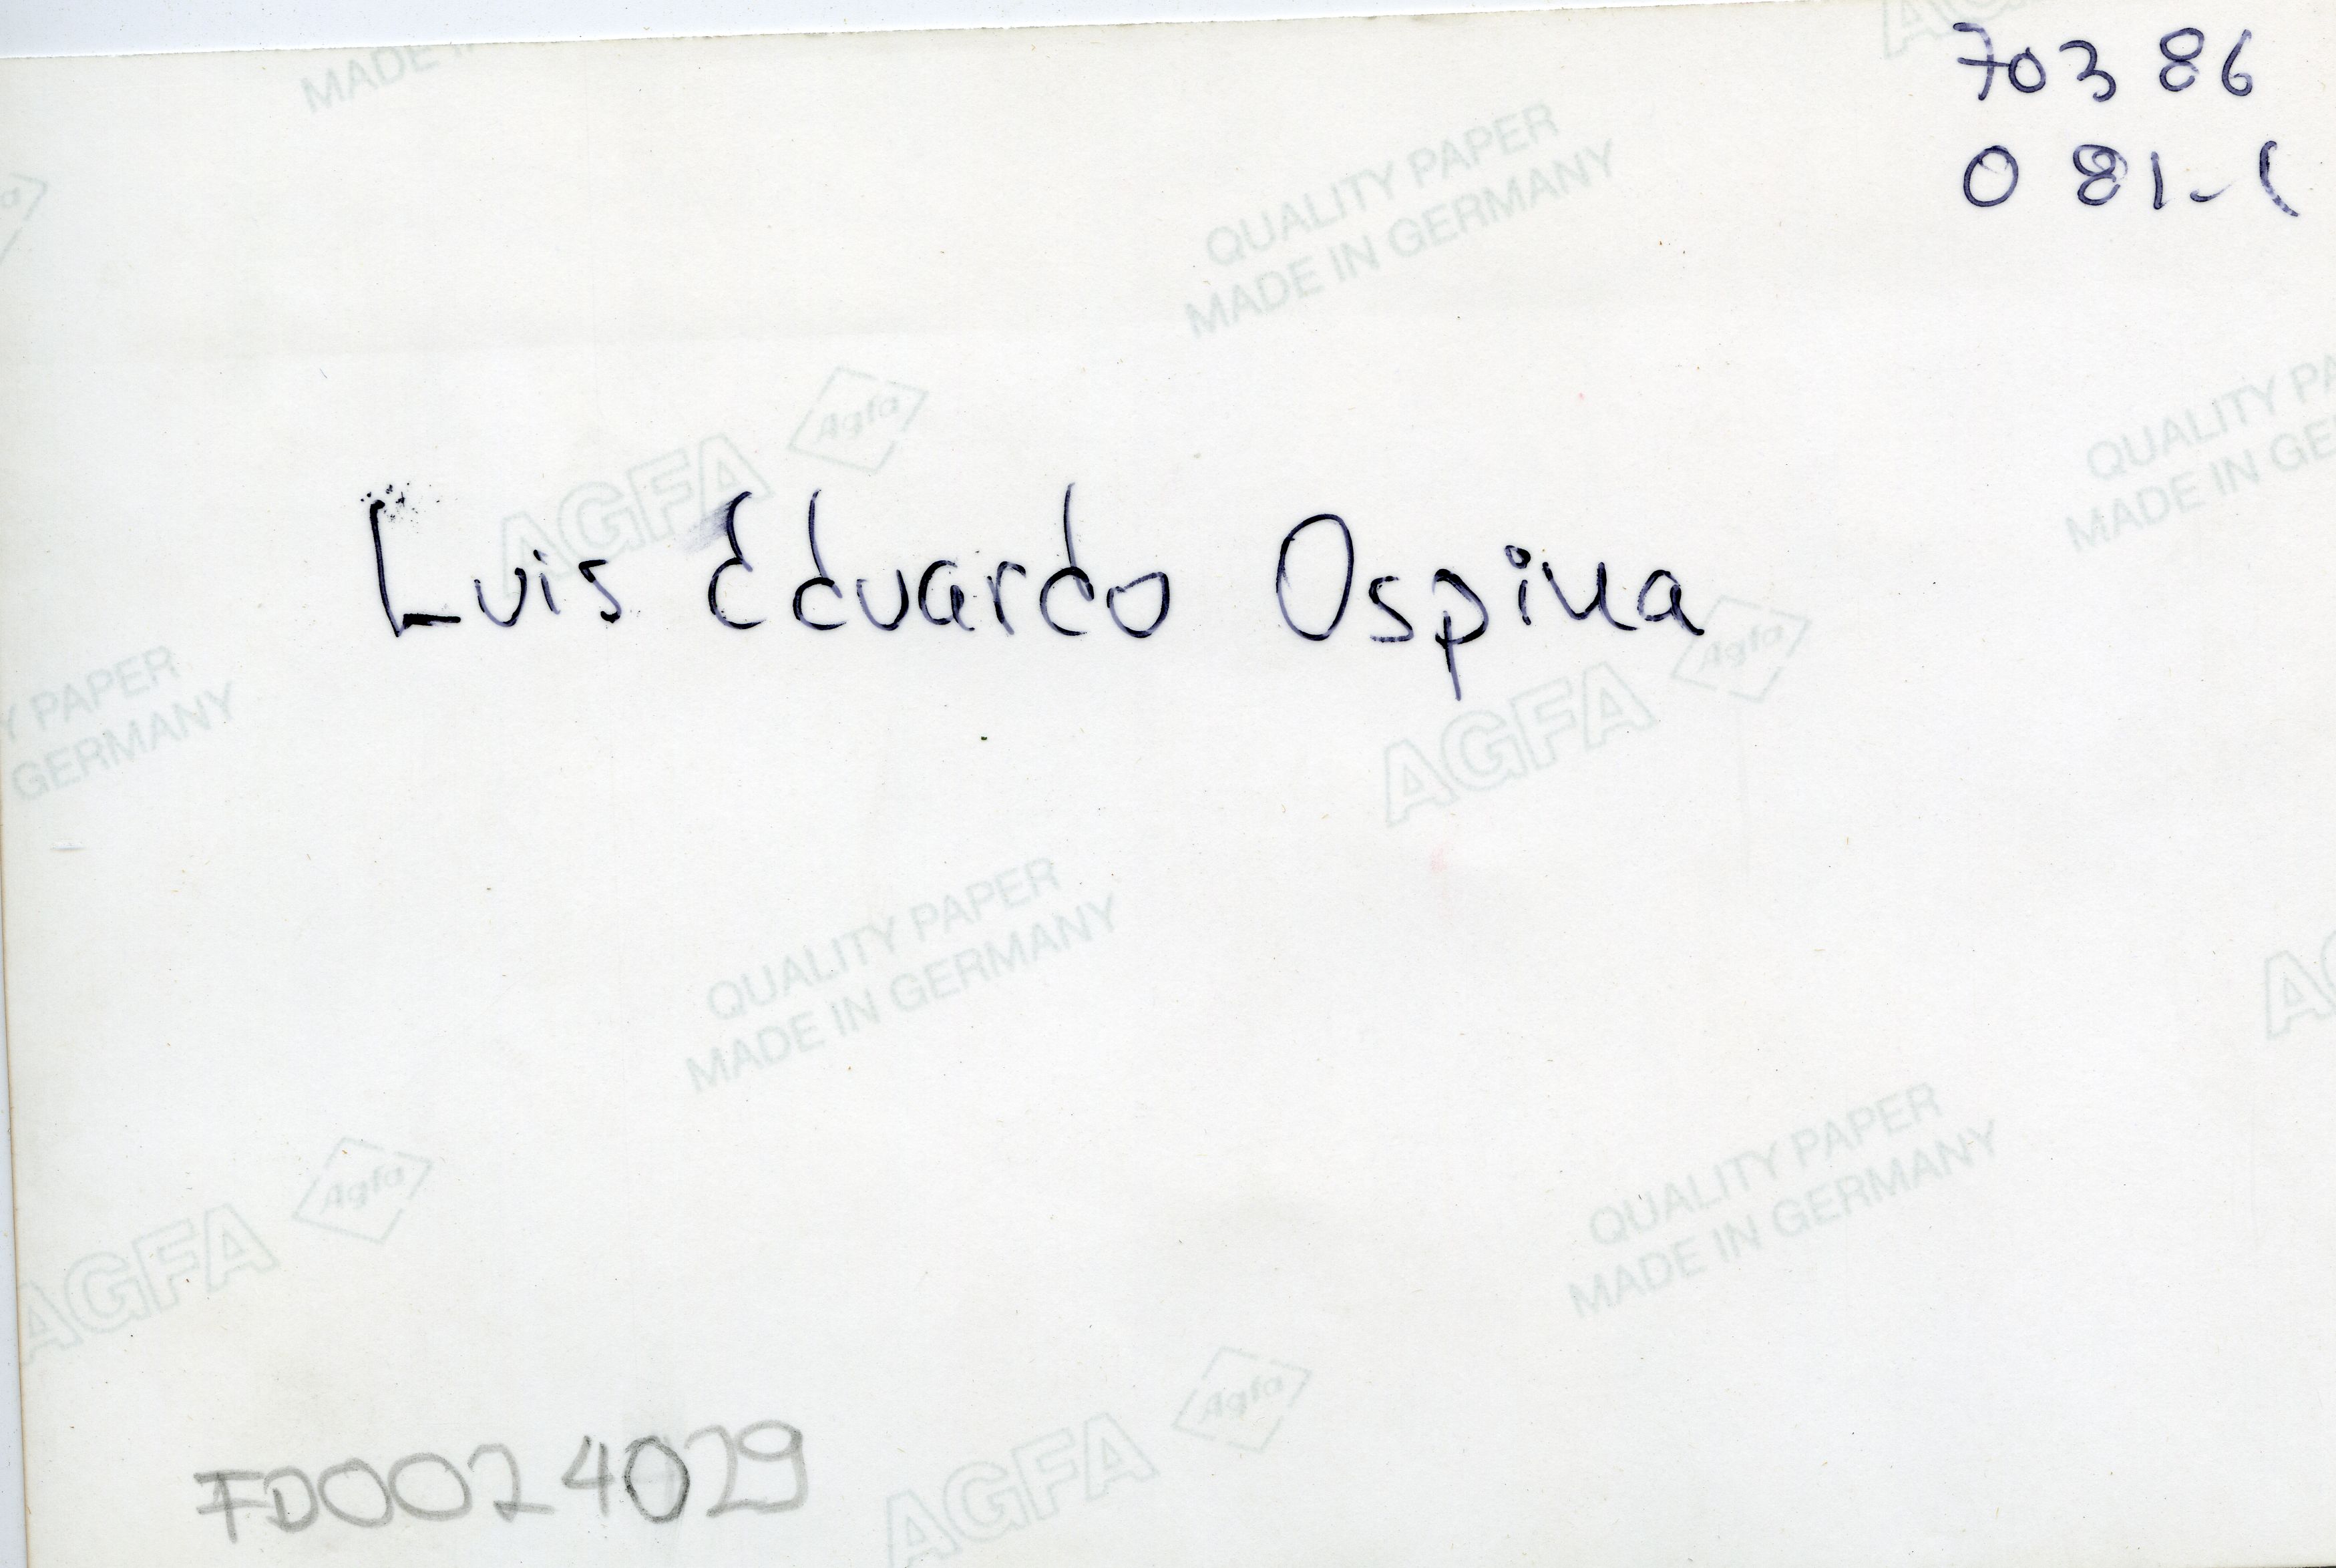 70386
081-1
MADE IN
QUALITY PAPER
MADE IN GERMANY
AGFA Agfa
QUALITY PA
MADE IN GE
Luis Eduardo Ospina
AGFA Agfa
Y PAPER
GERMANY
QUALITY PAPER
MADE IN GERMANY
AG
AGFA Agfa
QUALITY PAPER
MADE IN GERMANY
AGFA Agfa
FD0024029